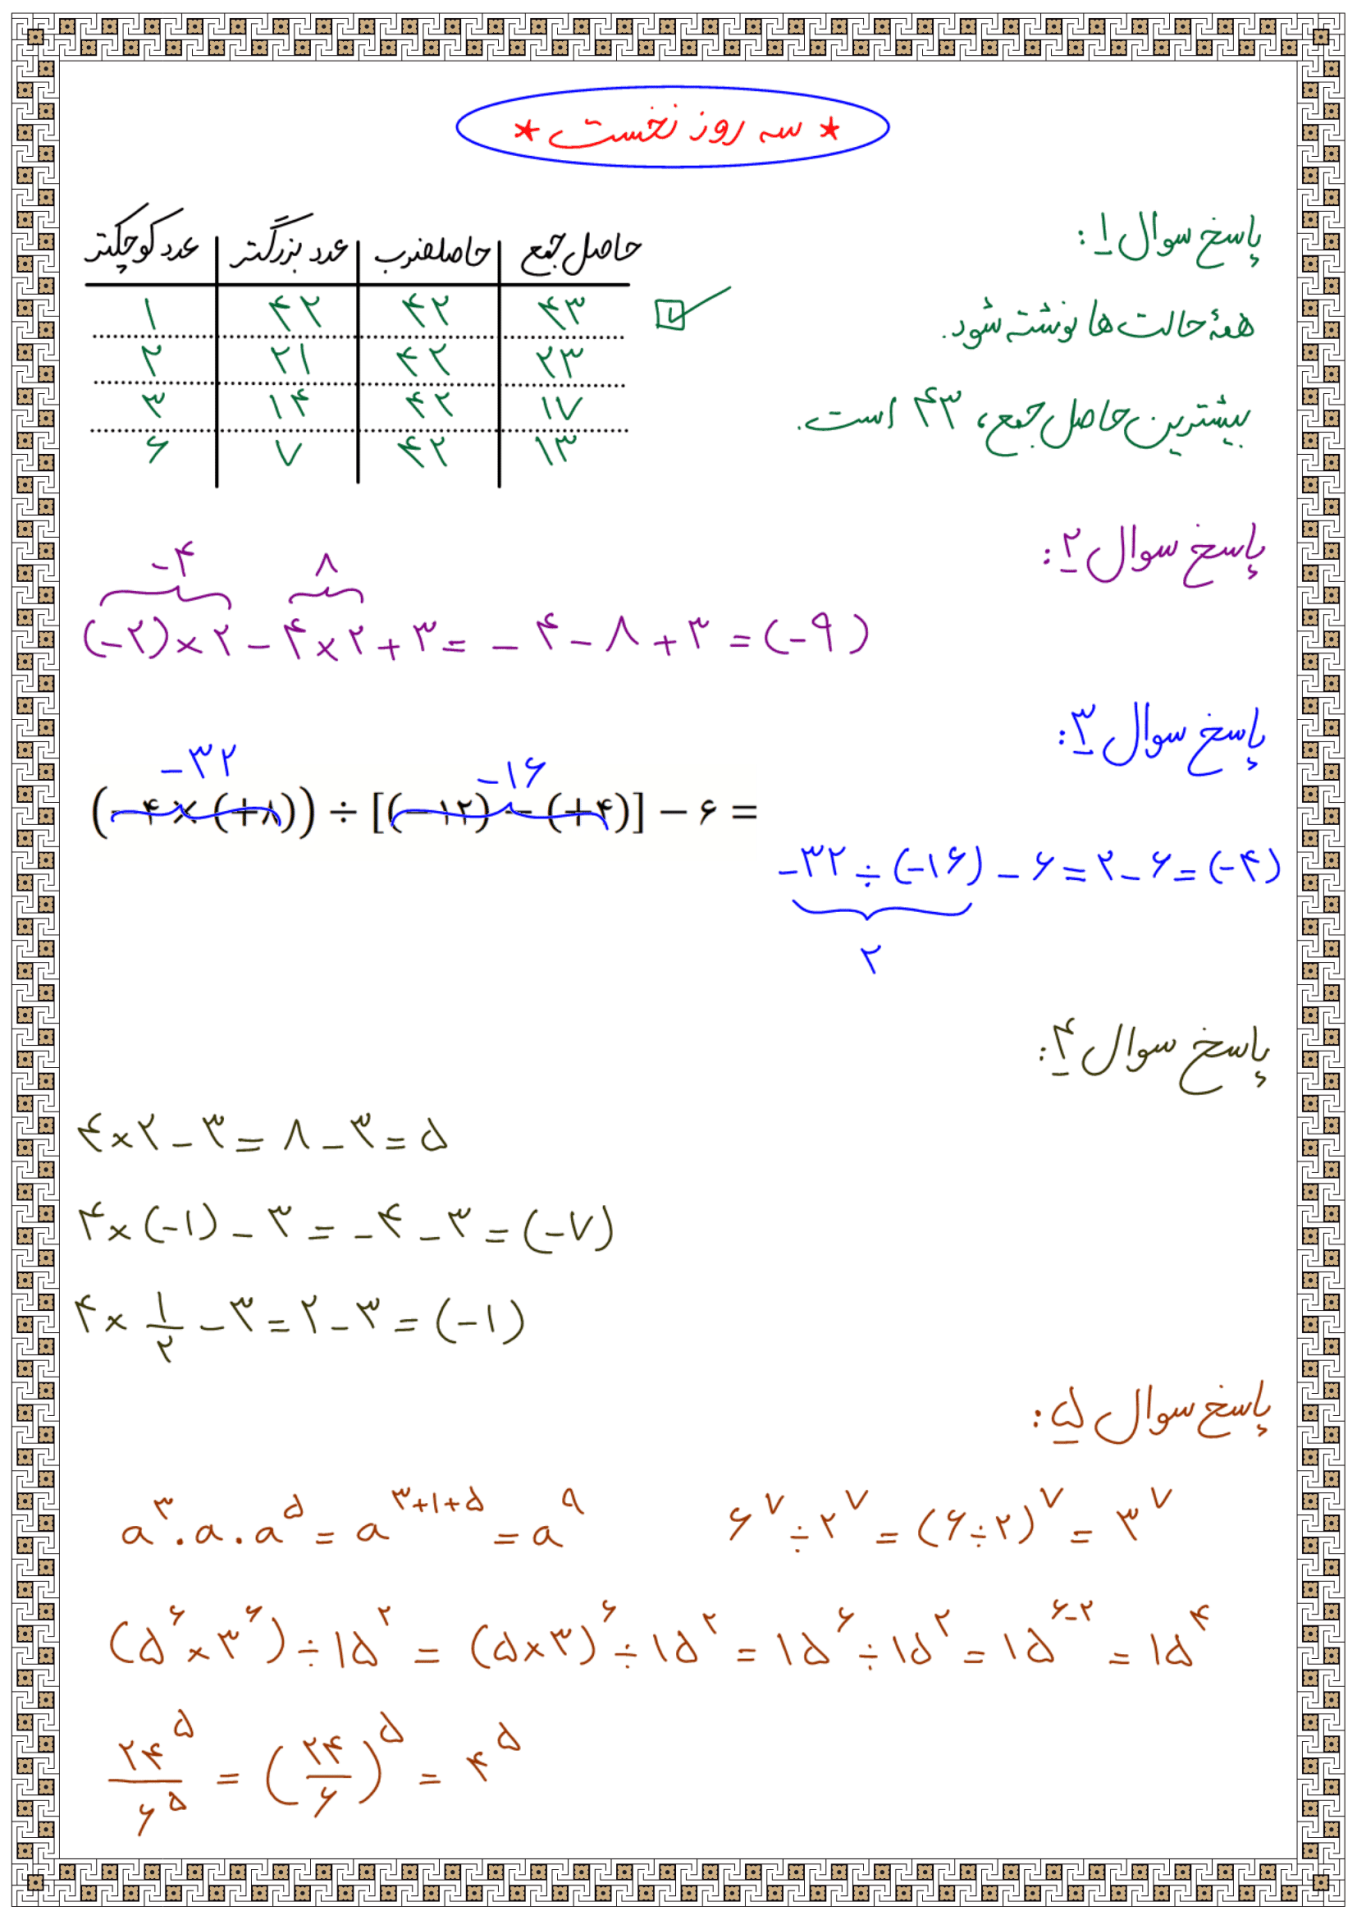 * سه روز نخست *
پاسخ سوال ۱:
همهٔ حالت ها نوشته شود.
بیشترین حاصل جمع، ۴۳ است.
عدد کوچکتر | عدد بزرگتر | حاصلضرب | حاصل جمع
۱ | ۴۲ | ۴۲ | ۴۳
۲ | ۲۱ | ۴۲ | ۲۳
۳ | ۱۴ | ۴۲ | ۱۷
۶ | ۷ | ۴۲ | ۱۳
پاسخ سوال ۲:
-۴ ۸
(-۲)×۲-۴×۲+۳= -۴-۸+۳=(-۹)
پاسخ سوال ۳:
-۳۲ -۱۶
(-۴×(+۸))÷[(-۱۲)-(+۴)]-۶=
-۳۲÷(-۱۶)-۶=۲-۶=(-۴)
۲
پاسخ سوال ۴:
۴×۲-۳=۸-۳=۵
۴×(-۱)-۳=-۴-۳=(-۷)
۴×۱/۲-۳=۲-۳=(-۱)
پاسخ سوال ۵:
a^۳.a.a^۵=a^(۳+۱+۵)=a^۹
۶^۷÷۲^۷=(۶÷۲)^۷=۳^۷
(۵^۶×۳^۶)÷۱۵^۲=(۵×۳)^۶÷۱۵^۲=۱۵^۶÷۱۵^۲=۱۵^(۶-۲)=۱۵^۴
۲۴^۵/۶^۵=(۲۴/۶)^۵=۴^۵